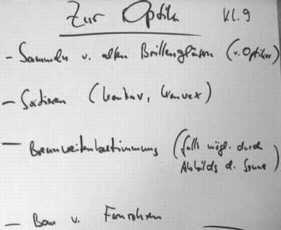 Zur Optik Kl. 9
- Sammeln v. alten Brillengläsern (v. Optiker)
- Sortieren (konkav, konvex)
- Brennweitenbestimmung (falls mögl. durch
Abbildg d. Sonne)
- Bau v. Fernrohren